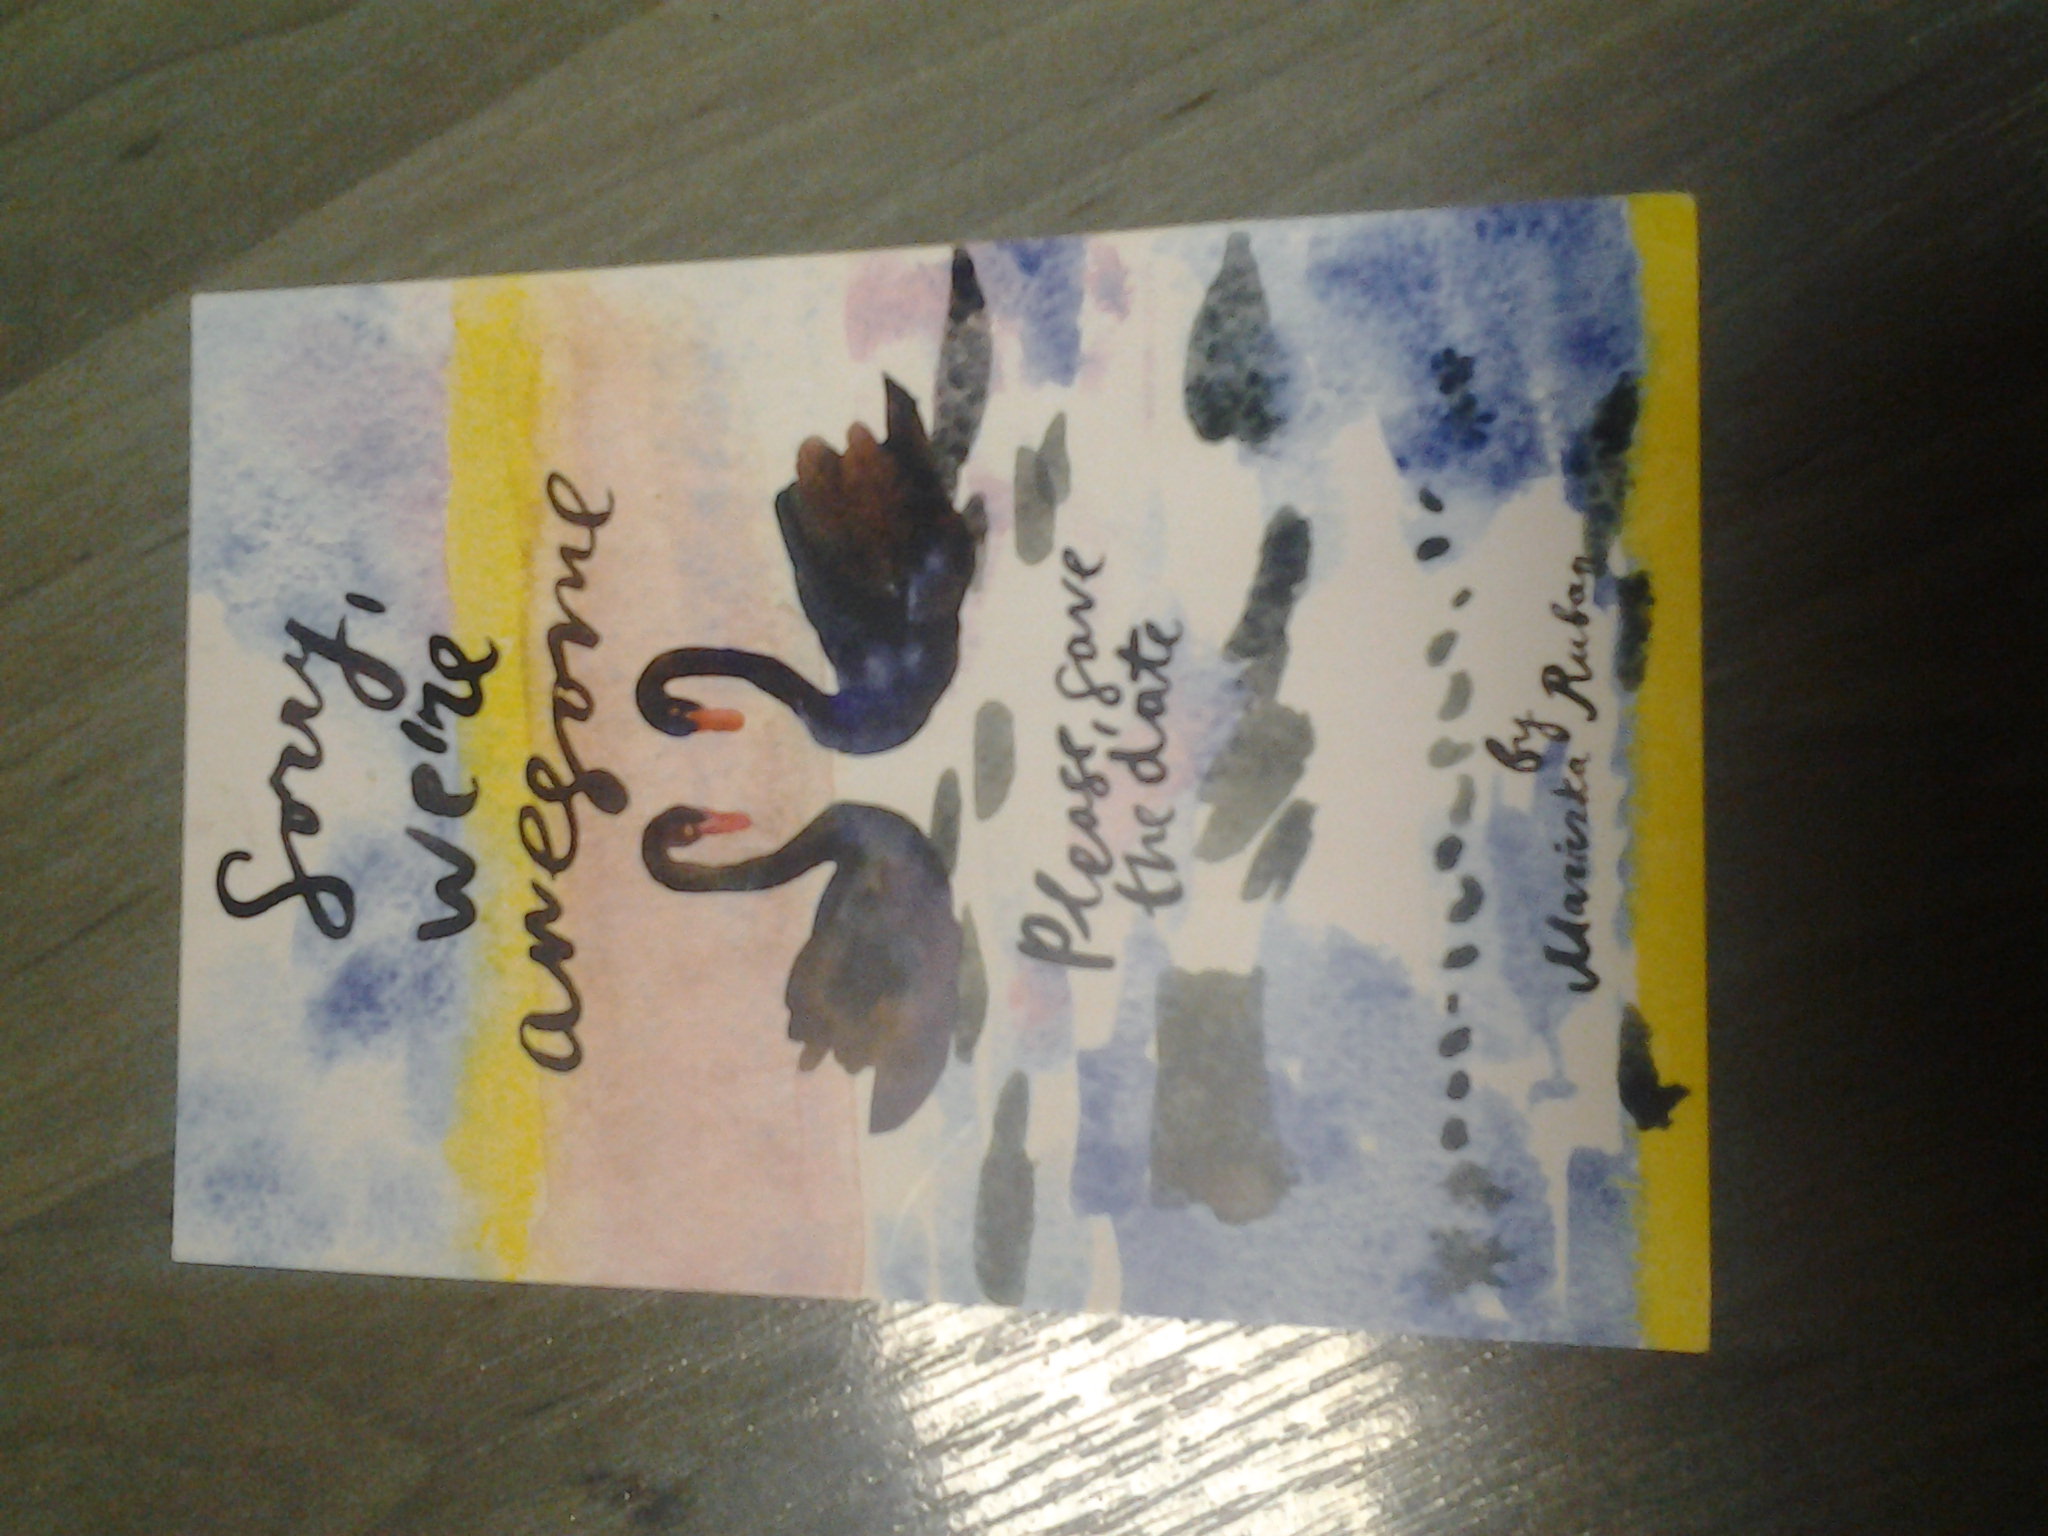 Sorry,
we're
awesome
Please, save
the date
by
Marieszka Ruban